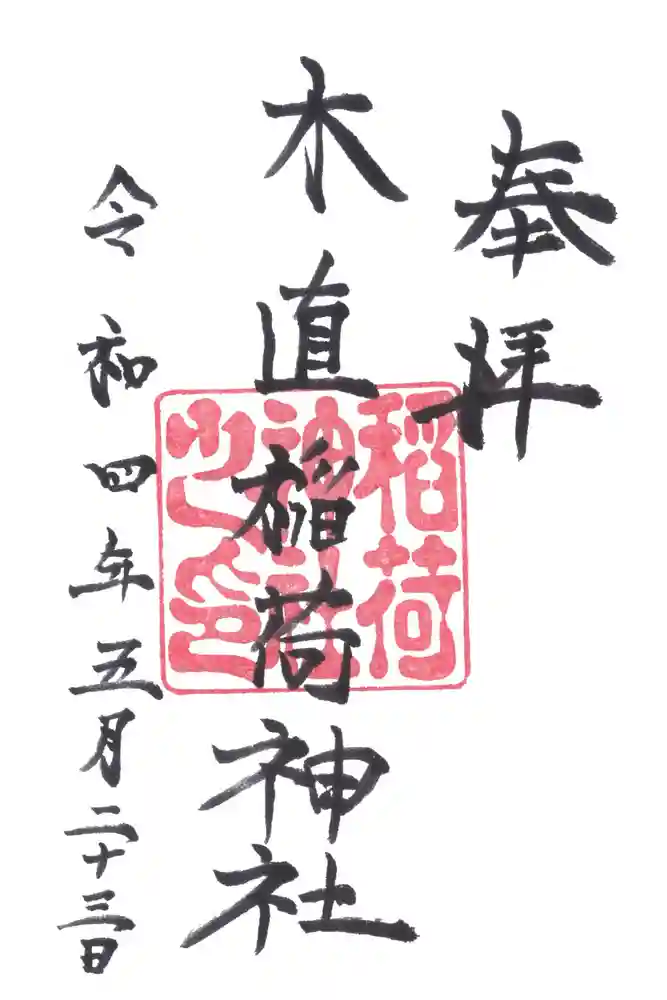 奉拝
木直稲荷神社
令和四年五月二十三日
稲荷
神社
之印